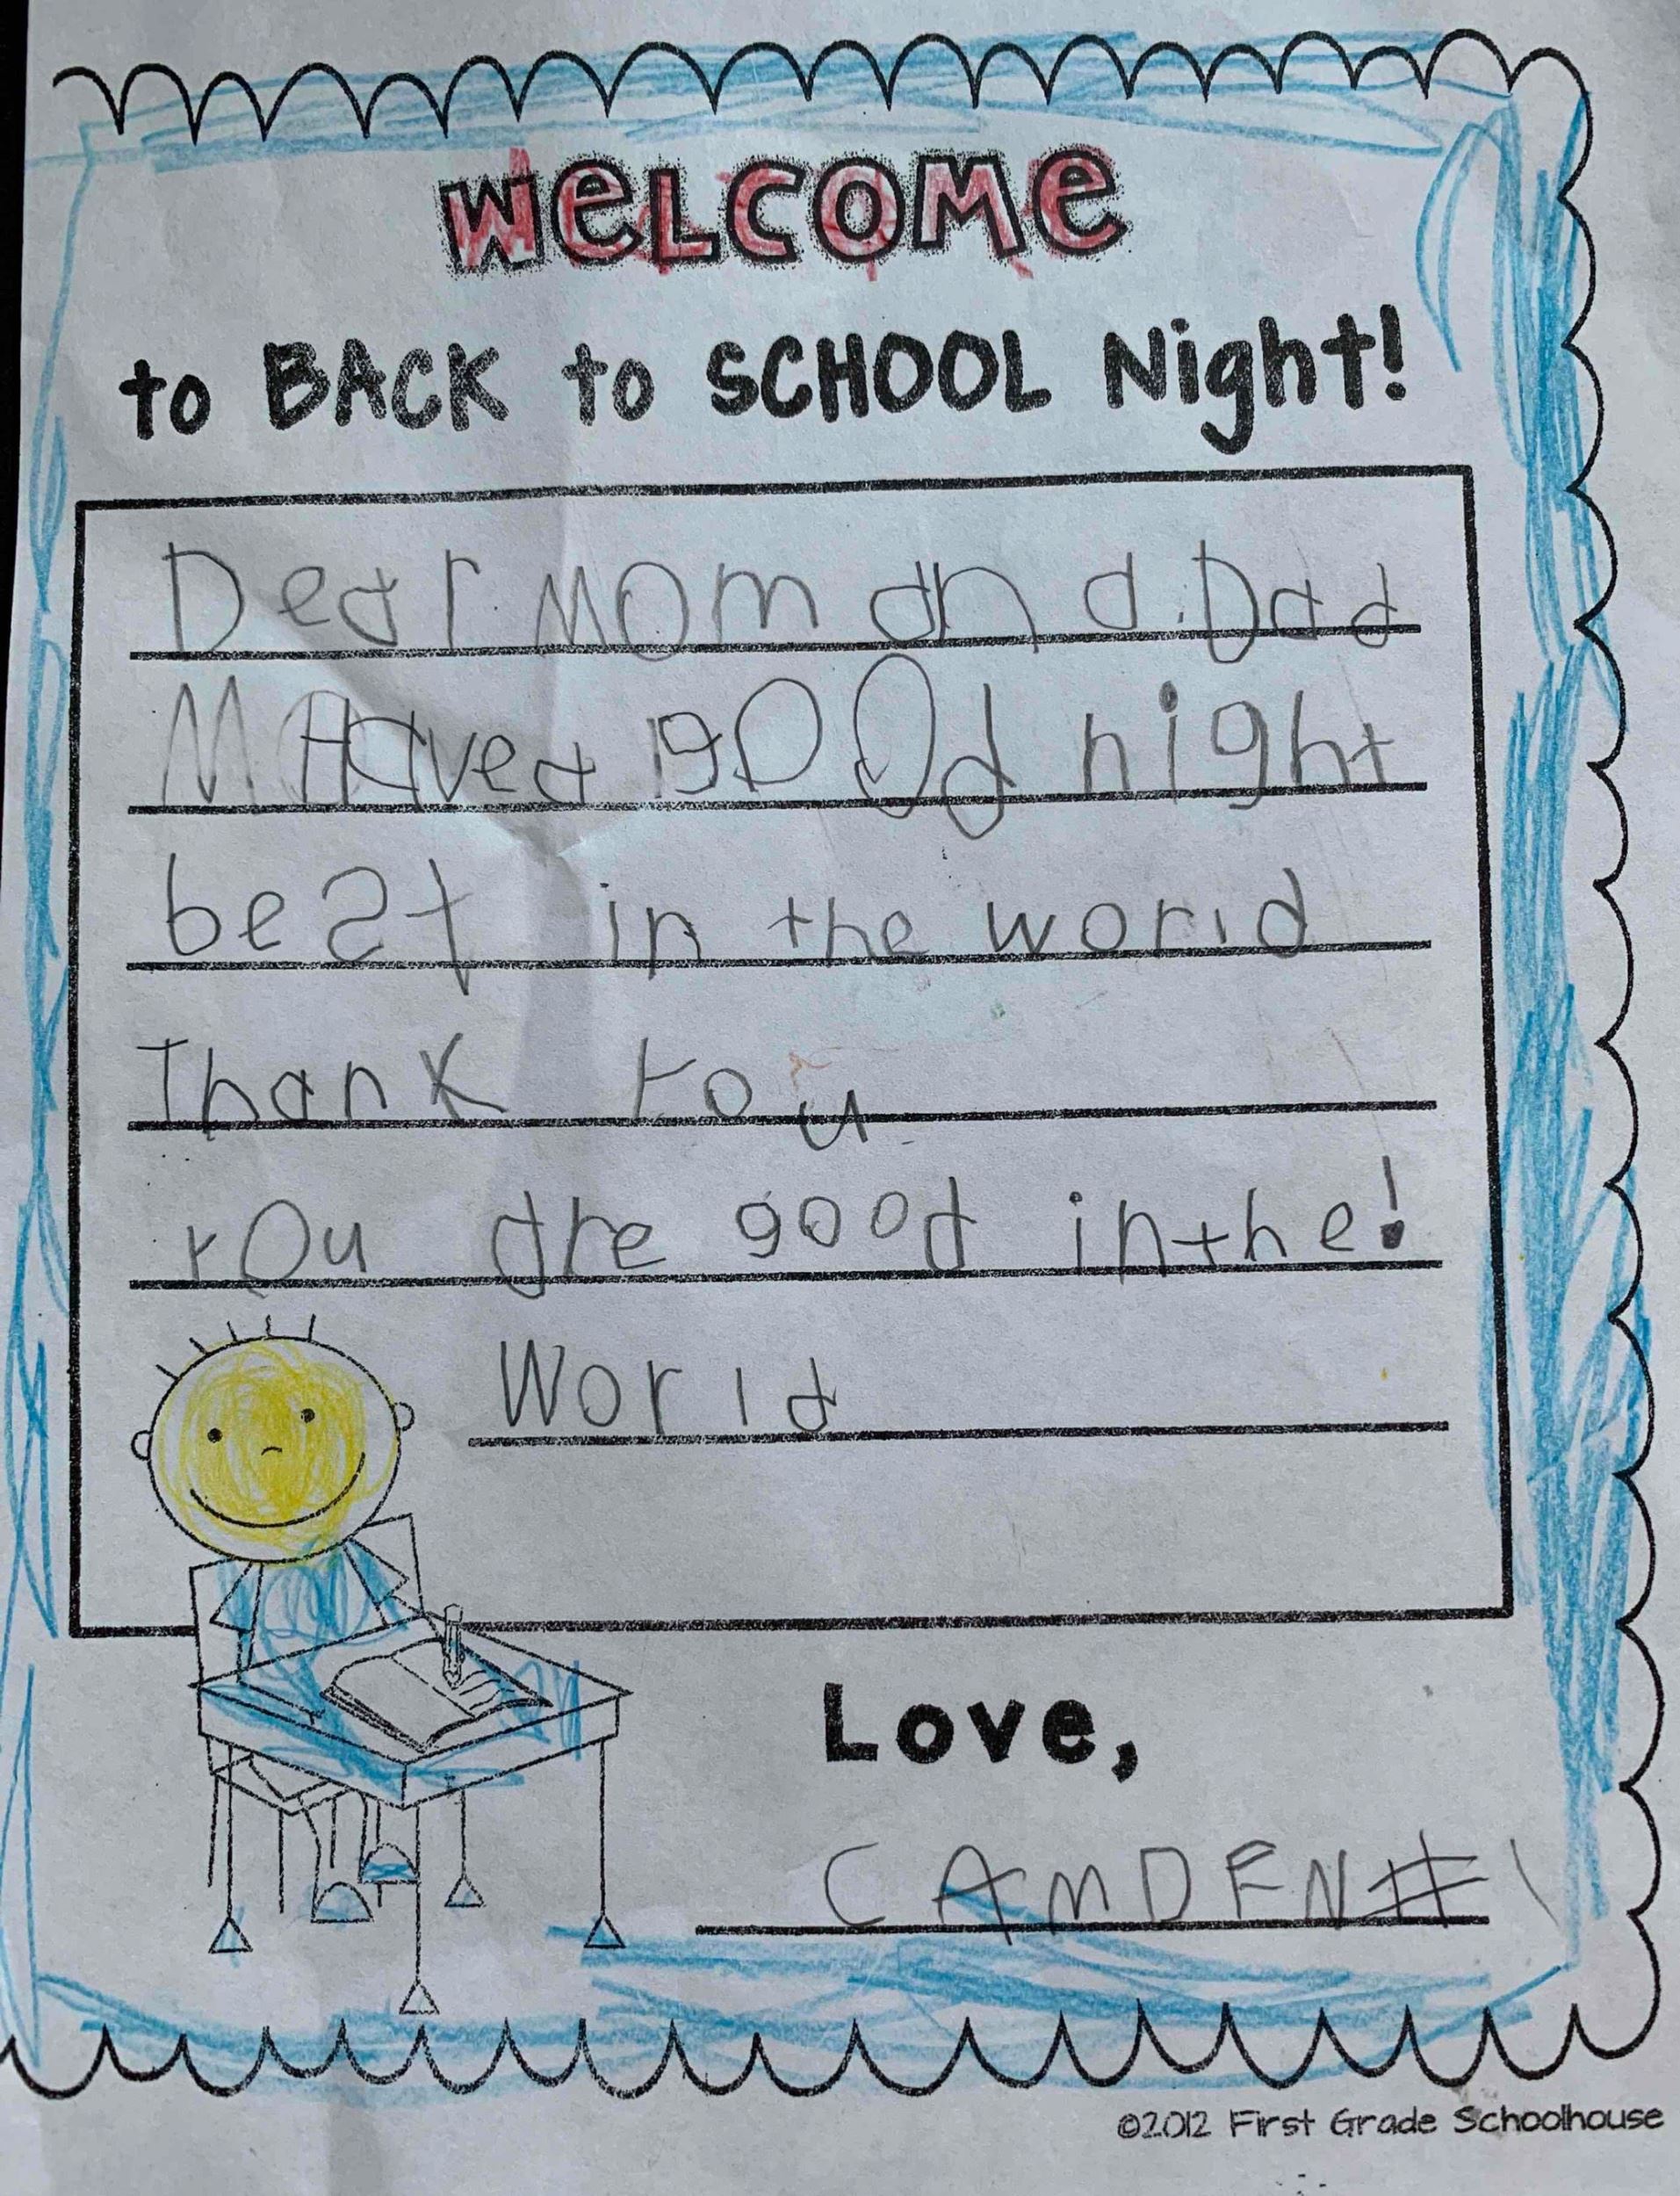 WeLCOMe
to BACK to SCHOOL Night!
Dear Mom and Dad
Have a good night
best in the world
Thank You
You are good in the!
World
Love,
CAMDEN #1
©2012 First Grade Schoolhouse